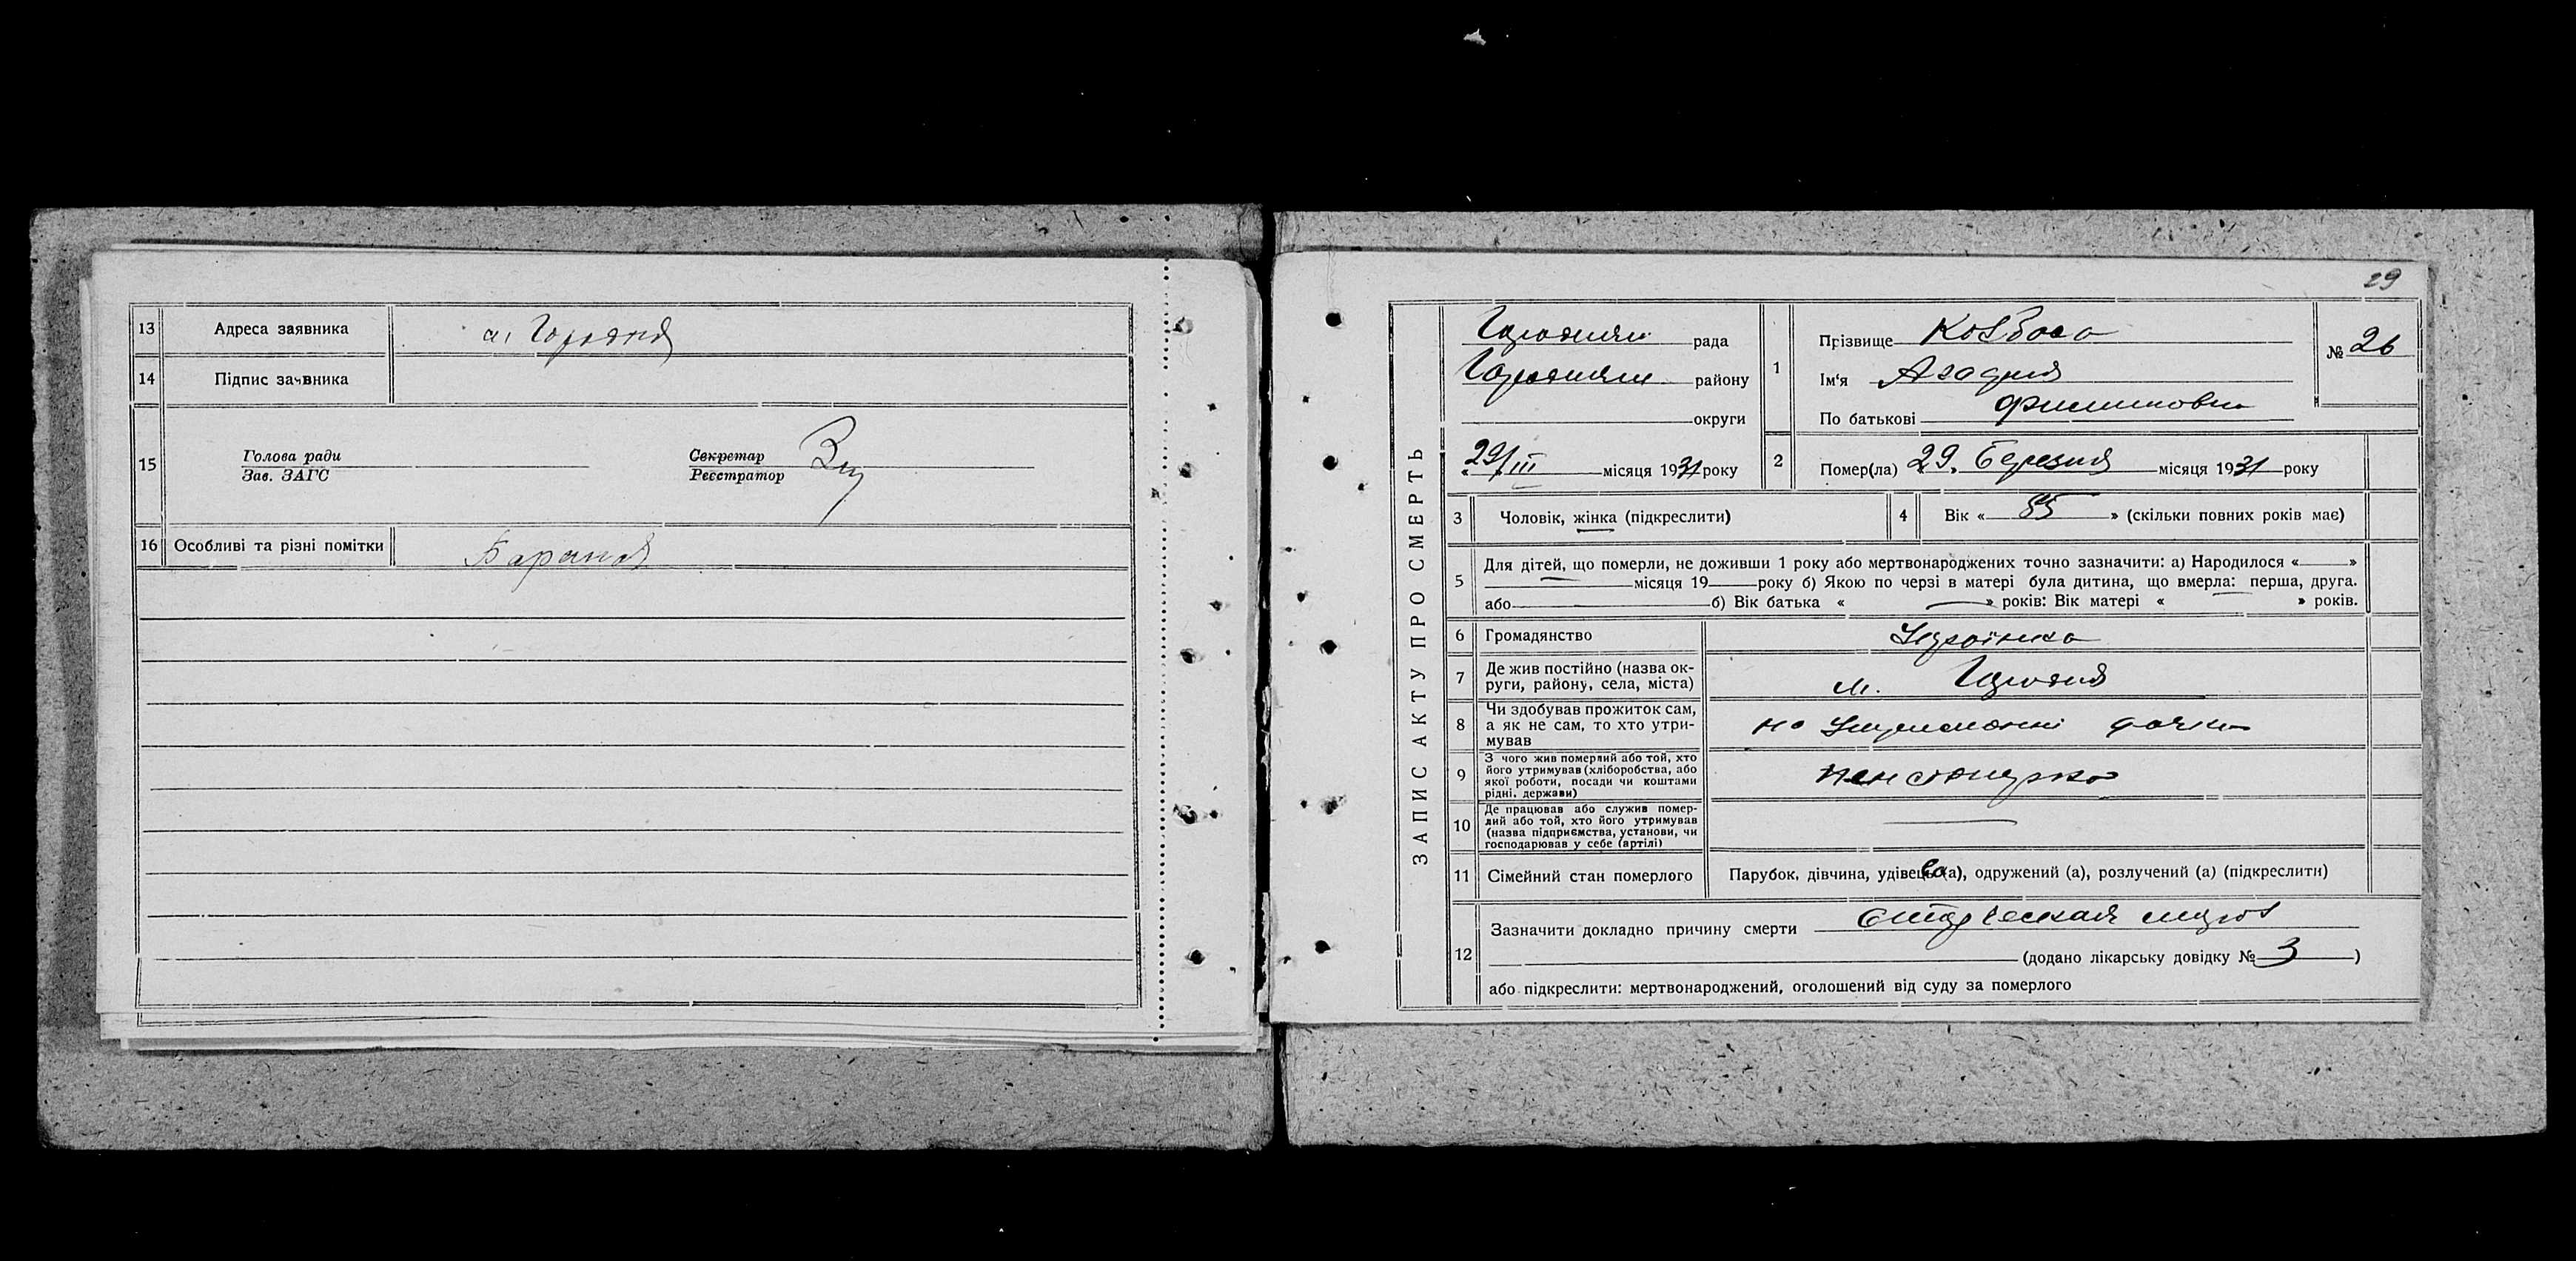 13 Адреса заявника м. Городня
14 Підпис заявника
15 Голова ради Секретар
Зав. ЗАГС Реєстратор
16 Особливі та різні помітки
29
ЗАПИС АКТУ ПРО СМЕРТЬ
Городнян рада
Городнян району
округи
29/III місяця 1931 року
1 Прізвище Ковбаса
Ім'я Агафия
По батькові Филиповна
№ 26
2 Помер(ла) 29. Березня місяця 1931 року
3 Чоловік, жінка (підкреслити)
4 Вік « 85 » (скільки повних років має)
5 Для дітей, що померли, не доживши 1 року або мертвонароджених точно зазначити: а) Народилося « »
місяця 19 року б) Якою по черзі в матері була дитина, що вмерла: перша, друга.
або б) Вік батька « » років: Вік матері « » років.
6 Громадянство Українка
7 Де жив постійно (назва ок-
руги, району, села, міста) м. Городня
8 Чи здобував прожиток сам,
а як не сам, то хто утри-
мував на утриманні дочки
9 З чого жив померлий або той, хто
його утримував (хліборобства, або
якої роботи, посади чи коштами
рідні, держави) пенсіонерка
10 Де працював або служив помер-
лий або той, хто його утримував
(назва підприємства, установи, чи
господарював у себе (артілі)
11 Сімейний стан померлого Парубок, дівчина, удівець(а), одружений (а), розлучений (а) (підкреслити)
12 Зазначити докладно причину смерти
(додано лікарську довідку № 3 )
або підкреслити: мертвонароджений, оголошений від суду за померлого